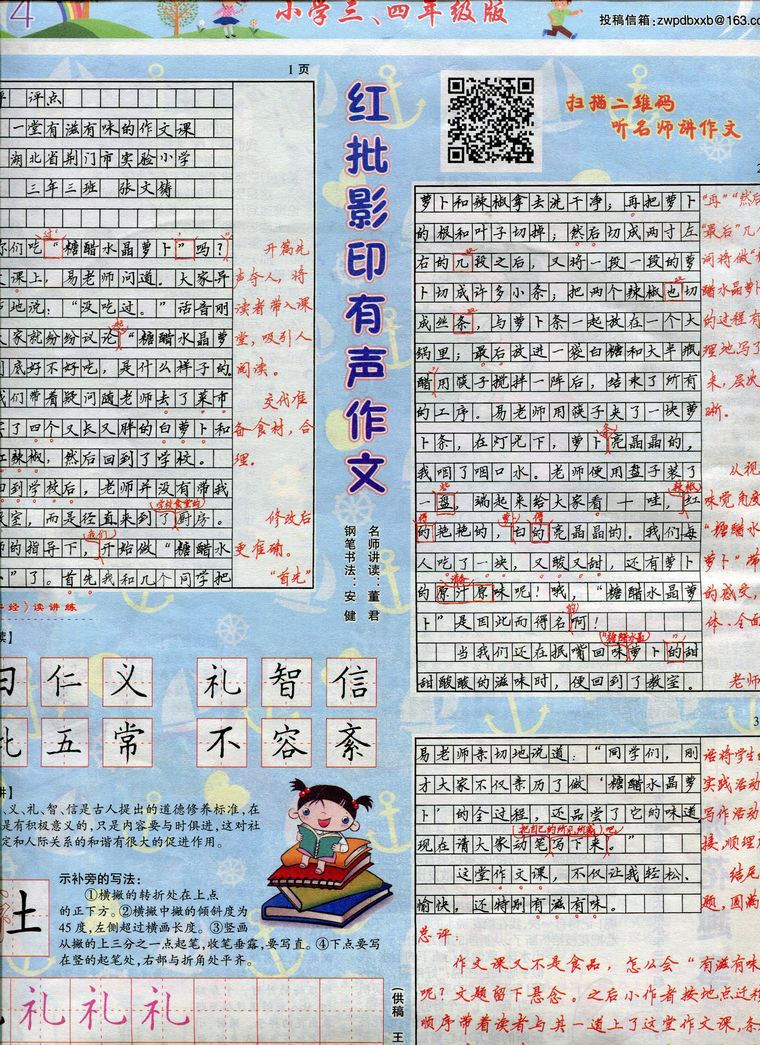 4
小学三、四年级版
投稿信箱:zwpdbxxb@163.co
1页
评点
一堂有滋有味的作文课
湖北省荆门市实验小学
三年三班 张文铸
你们吃“糖醋水晶萝卜”吗?
过
课上,易老师问道。大家异
声地说:“没吃过。”话音刚
大家就纷纷议论“糖醋水晶萝
到底好不好吃,是什么样子的。
我们带着疑问随老师去了菜市
买了四个又长又胖的白萝卜和
红辣椒,然后回到了学校。
回到学校后,老师并没有带我
教室,而是径直来到了厨房。
(学校食堂的)
师的指导下,开始做“糖醋水
(我们)
”了。首先我和几个同学把
开篇先
声夺人,将
读者带入课
堂,吸引人
阅读。
交代准
备食材,合
理。
修改后
更准确。
“首先”
红批影印有声作文
名师讲读:董君
钢笔书法:安健
扫描二维码
听名师讲作文
萝卜和辣椒拿去洗干净;再把萝卜
的根和叶子切掉;然后切成两寸左
右的几段之后,又将一段一段的萝
卜切成许多小条;把两个辣椒也切
成丝条,与萝卜条一起放在一个大
锅里;最后放进一袋白糖和大半瓶
醋用筷子搅拌一阵后,结束了所有
的工序。易老师用筷子夹了一块萝
卜条,在灯光下,萝卜亮晶晶的,
条
我咽了咽口水。老师便用盘子装了
一盘,端起来给大家看——哇,红
辣椒
的艳艳的,白的亮晶晶的。我们每
得 萝卜 得
人吃了一块,又酸又甜,还有萝卜
的原汁原味呢!哦,“糖醋水晶萝
卜”是因此而得名啊!
的
当我们还在抿嘴回味萝卜的甜
“糖醋水晶
甜酸酸的滋味时,便回到了教室。
“再”“然后
“最后”几个
词将做“糖
醋水晶萝卜
的过程有
理地写了
来,层次
晰。
从视
味觉角度
“糖醋水晶
萝卜”带
的感受,
体、全面
老师
3
易老师亲切地说道:“同学们,刚
才大家不仅亲历了做‘糖醋水晶萝
卜’的全过程,还品尝了它的味道
现在请大家动笔写下来。”
(把自己的所见所感)吧
这堂作文课,不仅让我轻松、
愉快,还特别有滋有味。
话将学生的
实践活动
写作活动
接,顺理成
结尾
题,圆满
总评:
作文课又不是食品,怎么会“有滋有味
呢?文题留下悬念。之后小作者按地点迁移
顺序带着读者与其一道上了这堂作文课,条
经》读讲练
读】
曰仁义 礼智信
此五常 不容紊
讲】
、义、礼、智、信是古人提出的道德修养标准,在
是有积极意义的,只是内容要与时俱进,这对社
定和人际关系的和谐有很大的促进作用。
示补旁的写法:
①横撇的转折处在上点
的正下方。②横撇中撇的倾斜度为
45度,左侧超过横画长度。③竖画
从撇的上三分之一点起笔,收笔垂露,要写直。④下点要写
在竖的起笔处,右部与折角处平齐。
礼礼礼
(供稿 王